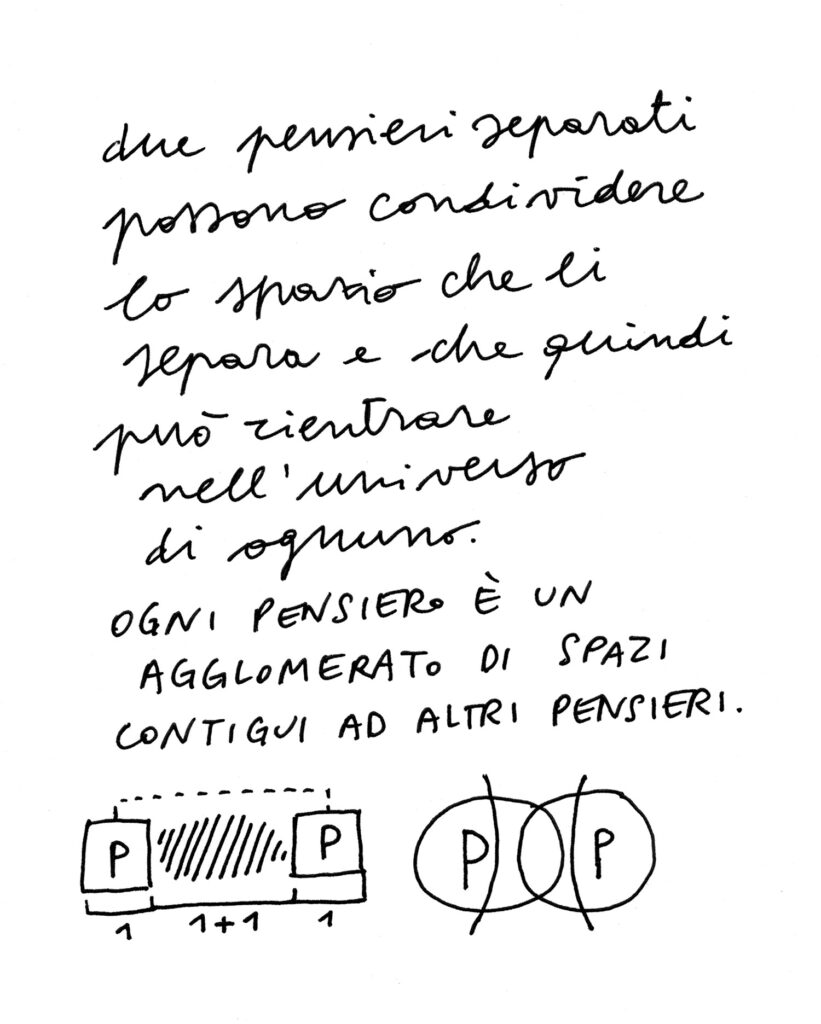 due pensieri separati
possono condividere
lo spazio che li
separa e che quindi
può rientrare
nell'universo
di ognuno.
OGNI PENSIERO È UN
AGGLOMERATO DI SPAZI
CONTIGUI AD ALTRI PENSIERI.
P P P P
1 1+1 1